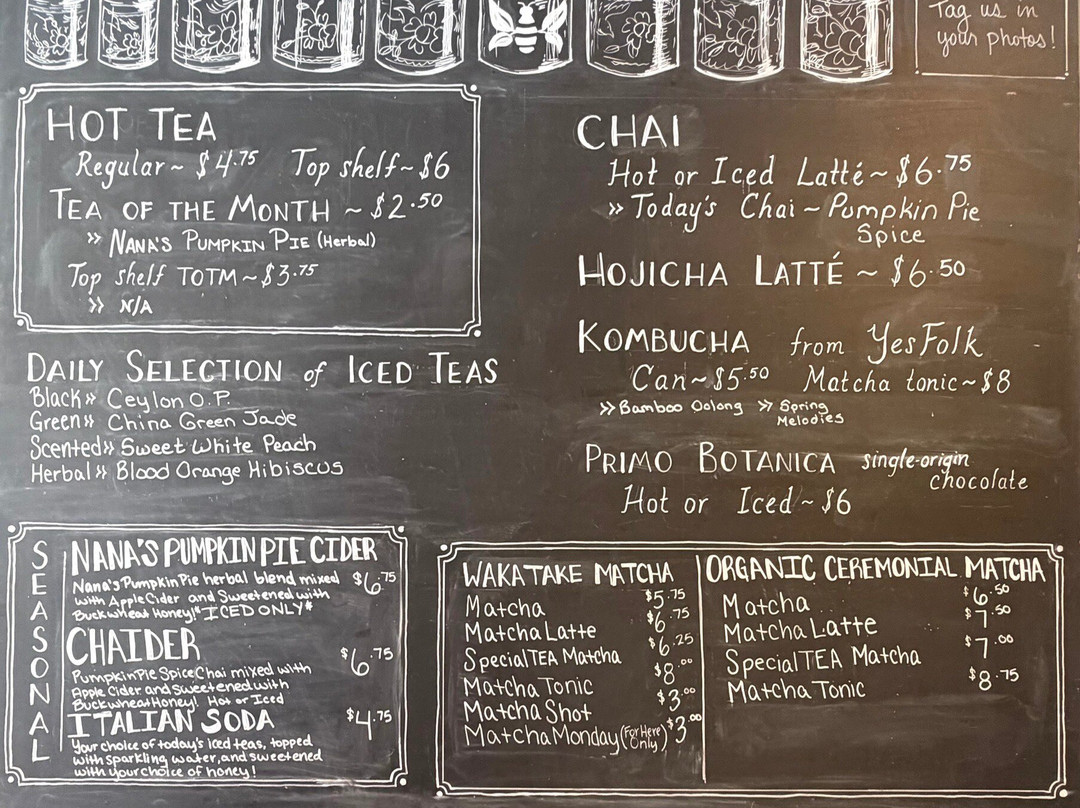 Tag us in
your photos!
HOT TEA
Regular ~ $4.75 Top shelf ~ $6
TEA OF THE MONTH ~ $2.50
» NANA'S PUMPKIN PIE (Herbal)
Top shelf TOTM ~ $3.75
» N/A
DAILY SELECTION of ICED TEAS
Black » Ceylon O.P.
Green » China Green Jade
Scented » Sweet White Peach
Herbal » Blood Orange Hibiscus
CHAI
Hot or Iced Latté ~ $6.75
» Today's Chai ~ Pumpkin Pie
Spice
HOJICHA LATTÉ ~ $6.50
KOMBUCHA from YesFolk
Can ~ $5.50 Matcha tonic ~ $8
» Bamboo Oolong » Spring
Melodies
PRIMO BOTANICA single-origin
chocolate
Hot or Iced ~ $6
SEASONAL
NANA'S PUMPKIN PIE CIDER
Nana's Pumpkin Pie herbal blend mixed $6.75
with Apple Cider and Sweetened with
Buckwheat Honey! *ICED ONLY*
CHAIDER $6.75
Pumpkin Pie Spice Chai mixed with
Apple Cider and Sweetened with
Buckwheat Honey! Hot or Iced
ITALIAN SODA $4.75
Your choice of today's iced teas, topped
with sparkling water, and sweetened
with your choice of honey!
WAKATAKE MATCHA
Matcha $5.75
Matcha Latte $6.75
SpecialTEA Matcha $6.25
Matcha Tonic $8.00
Matcha Shot $3.00
Matcha Monday (For Here Only) $3.00
ORGANIC CEREMONIAL MATCHA
Matcha $6.50
Matcha Latte $7.50
SpecialTEA Matcha $7.00
Matcha Tonic $8.75